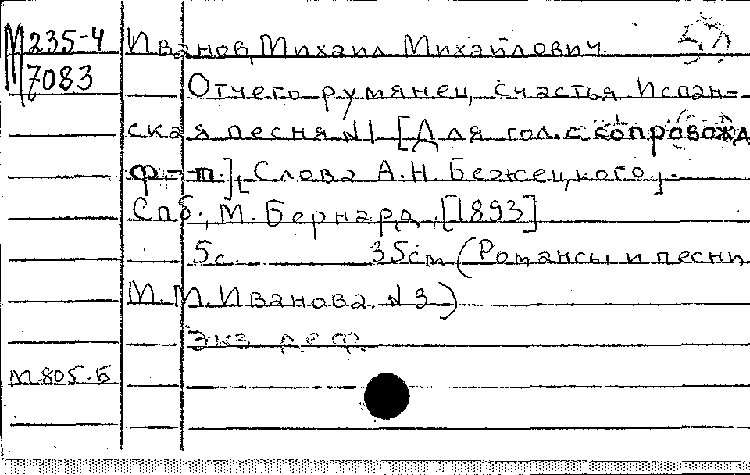 М 235-4 Иванов, Михаил Михайлович
7083 Отчего румянец счастья. Испан-
ская песня №1 [Для гол. с сопровожд.
ф-п.], Слова А.Н. Бежецкого,
Спб., М. Бернард, [1893]
5с. 35см (Романсы и песни
М.М. Иванова. №3)
Экз. деф.
М 805.Б